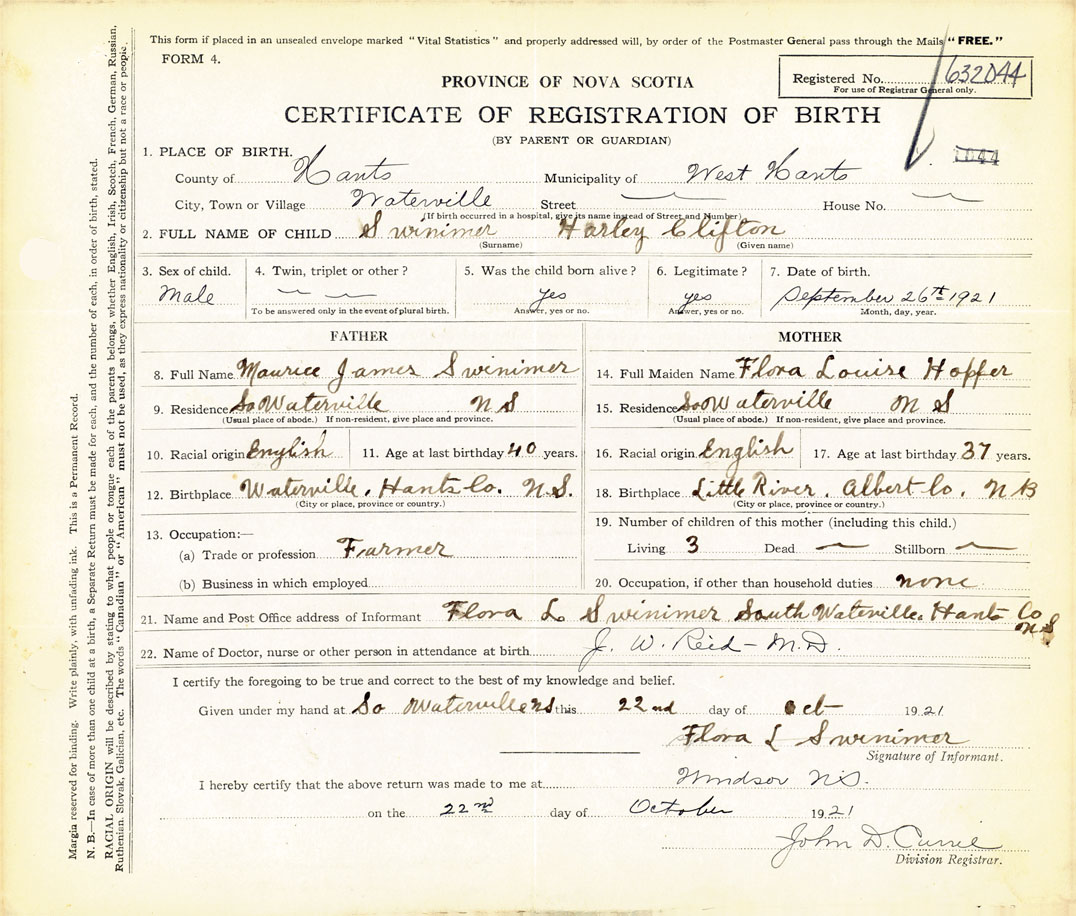 This form if placed in an unsealed envelope marked "Vital Statistics" and properly addressed will, by order of the Postmaster General pass through the Mails "FREE."
FORM 4.
PROVINCE OF NOVA SCOTIA
Registered No. 632044
For use of Registrar General only.
CERTIFICATE OF REGISTRATION OF BIRTH
(BY PARENT OR GUARDIAN)
1044
1. PLACE OF BIRTH.
County of Hants Municipality of West Hants
City, Town or Village Waterville Street — House No. —
(If birth occurred in a hospital, give its name instead of Street and Number)
2. FULL NAME OF CHILD Swinimer Harley Clifton
(Surname) (Given name)
3. Sex of child. 4. Twin, triplet or other? 5. Was the child born alive? 6. Legitimate? 7. Date of birth.
Male — — yes yes September 26th 1921
To be answered only in the event of plural birth. Answer, yes or no. Answer, yes or no. Month, day, year.
FATHER MOTHER
8. Full Name Maurice James Swinimer 14. Full Maiden Name Flora Louise Hopper
9. Residence So Waterville N S 15. Residence So Waterville N S
(Usual place of abode.) If non-resident, give place and province. (Usual place of abode.) If non-resident, give place and province.
10. Racial origin English 11. Age at last birthday 40 years. 16. Racial origin English 17. Age at last birthday 37 years.
12. Birthplace Waterville, Hants Co. N.S. 18. Birthplace Little River, Albert Co. N B
(City or place, province or country.) (City or place, province or country.)
13. Occupation:— 19. Number of children of this mother (including this child.)
(a) Trade or profession Farmer Living 3 Dead — Stillborn —
(b) Business in which employed 20. Occupation, if other than household duties none
21. Name and Post Office address of Informant Flora L Swinimer South Waterville, Hants Co N S
22. Name of Doctor, nurse or other person in attendance at birth J. W. Reid - M.D.
I certify the foregoing to be true and correct to the best of my knowledge and belief.
Given under my hand at So Waterville NS this 22nd day of Oct 1921
Flora L Swinimer
Signature of Informant.
I hereby certify that the above return was made to me at Windsor N.S.
on the 22nd day of October 1921
John D. Currie
Division Registrar.
Margia reserved for binding. Write plainly, with unfading ink. This is a Permanent Record.
N. B.—In case of more than one child at a birth, a Separate Return must be made for each, and the number of each, in order of birth, stated.
RACIAL ORIGIN will be described by stating to what people or tongue each of the parents belongs, whether English, Irish, Scotch, French, German, Russian,
Ruthenian, Slovak, Galician, etc. The words "Canadian" or "American" must not be used, as they express nationality or citizenship but not a race or people.